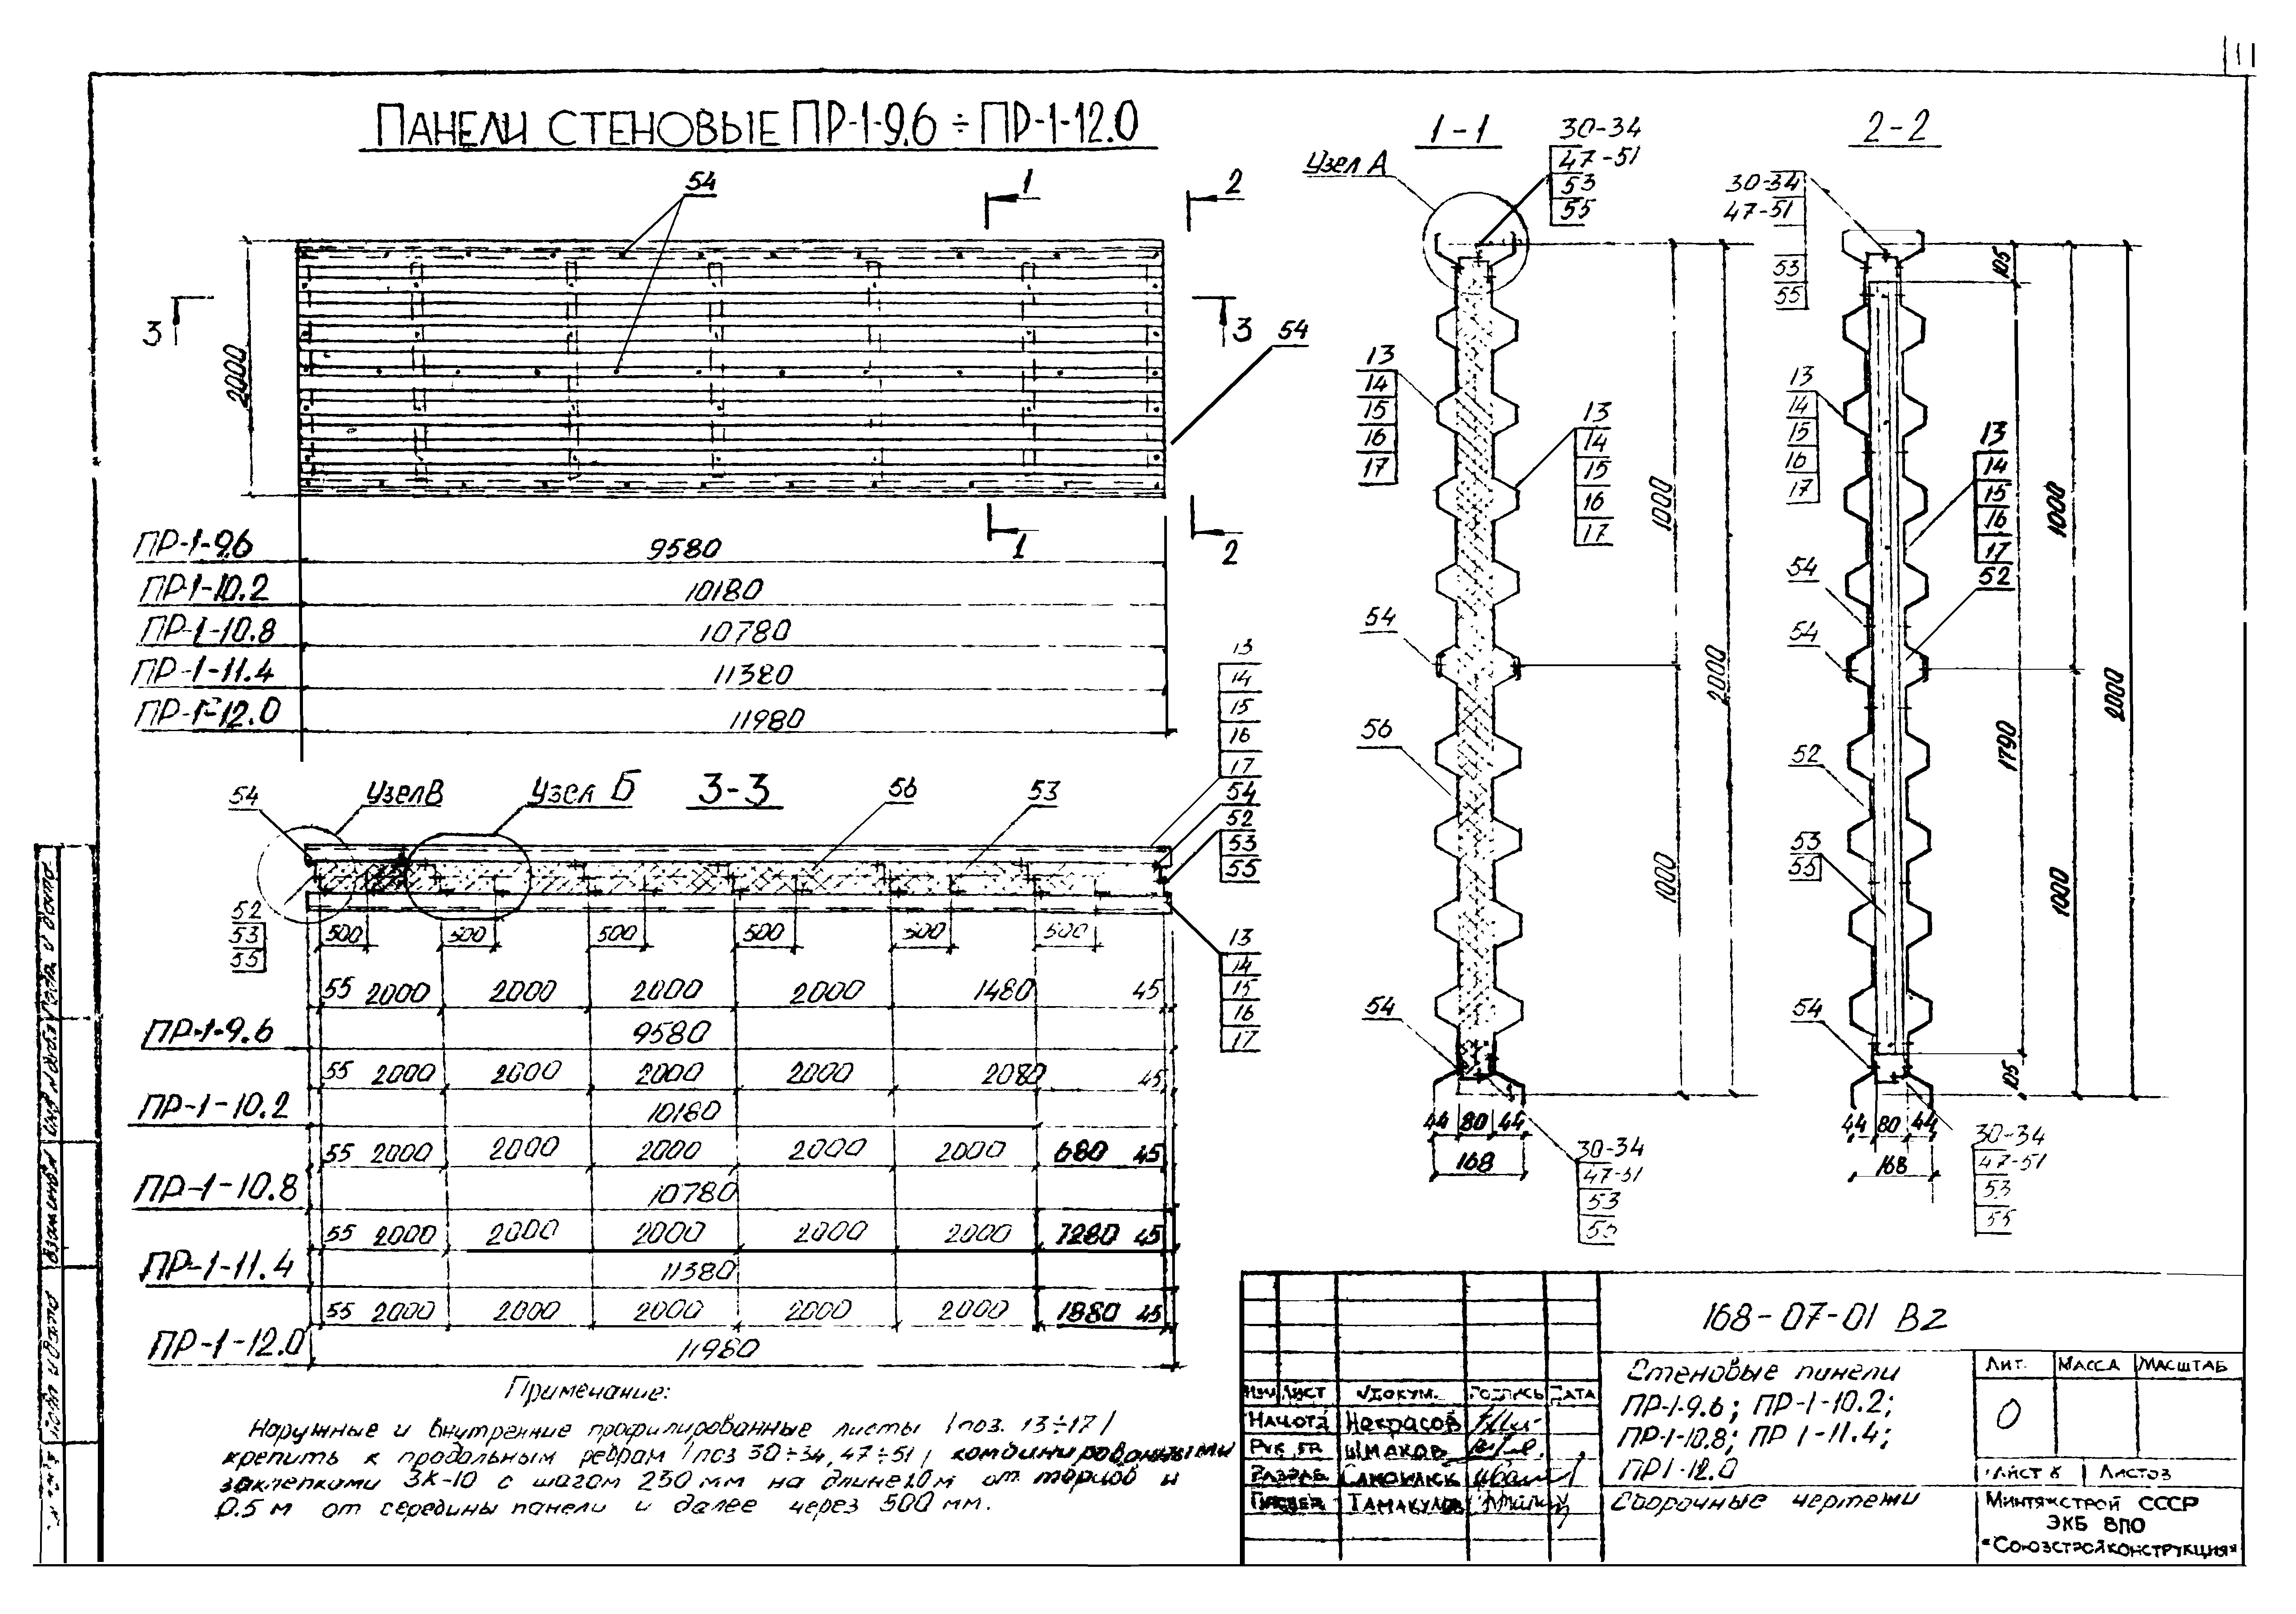 ПАНЕЛИ СТЕНОВЫЕ ПР-1-9.6 ÷ ПР-1-12.0
54
1
2
3
3
54
2000
1
2
ПР-1-9.6 9580
ПР-1-10.2 10180
ПР-1-10.8 10780
ПР-1-11.4 11380
ПР-1-12.0 11980
54
Узел В
Узел Б
3-3
56
53
13
14
15
16
17
54
52
53
55
52
53
55
13
14
15
16
17
500 500 500 500 500 500
55 2000 2000 2000 2000 1480 45
ПР-1-9.6 9580
55 2000 2000 2000 2000 2080 45
ПР-1-10.2 10180
55 2000 2000 2000 2000 2000 680 45
ПР-1-10.8 10780
55 2000 2000 2000 2000 2000 1280 45
ПР-1-11.4 11380
55 2000 2000 2000 2000 2000 1880 45
ПР-1-12.0 11980
Примечание:
Наружные и внутренние профилированные листы /поз. 13÷17/
крепить к продольным ребрам /поз 30÷34, 47÷51/ комбинированными
заклепками ЗК-10 с шагом 250 мм на длине от торцов и
0.5 м от середины панели и далее через 500 мм.
1-1
Узел А
30-34
47-51
53
55
13
14
15
16
17
13
14
15
16
17
54
56
54
1000
1000
2000
44 80 44
168
30-34
47-51
53
2-2
30-34
47-51
53
55
13
14
15
16
17
13
14
15
16
17
52
54
54
52
53
55
54
105
1790
105
1000
1000
2000
44 80 44
168
30-34
47-51
53
55
168-07-01 В2
Стеновые панели
ПР-1-9.6; ПР-1-10.2;
ПР-1-10.8; ПР 1-11.4;
ПР1-12.0
Сборочные чертежи
Лит. Масса Масштаб
О
Лист 8 Листов
Минтяжстрой СССР
ЭКБ ВПО
"Союзстройконструкция"
Изм Лист №докум. Подпись Дата
Некрасов
Шмаков